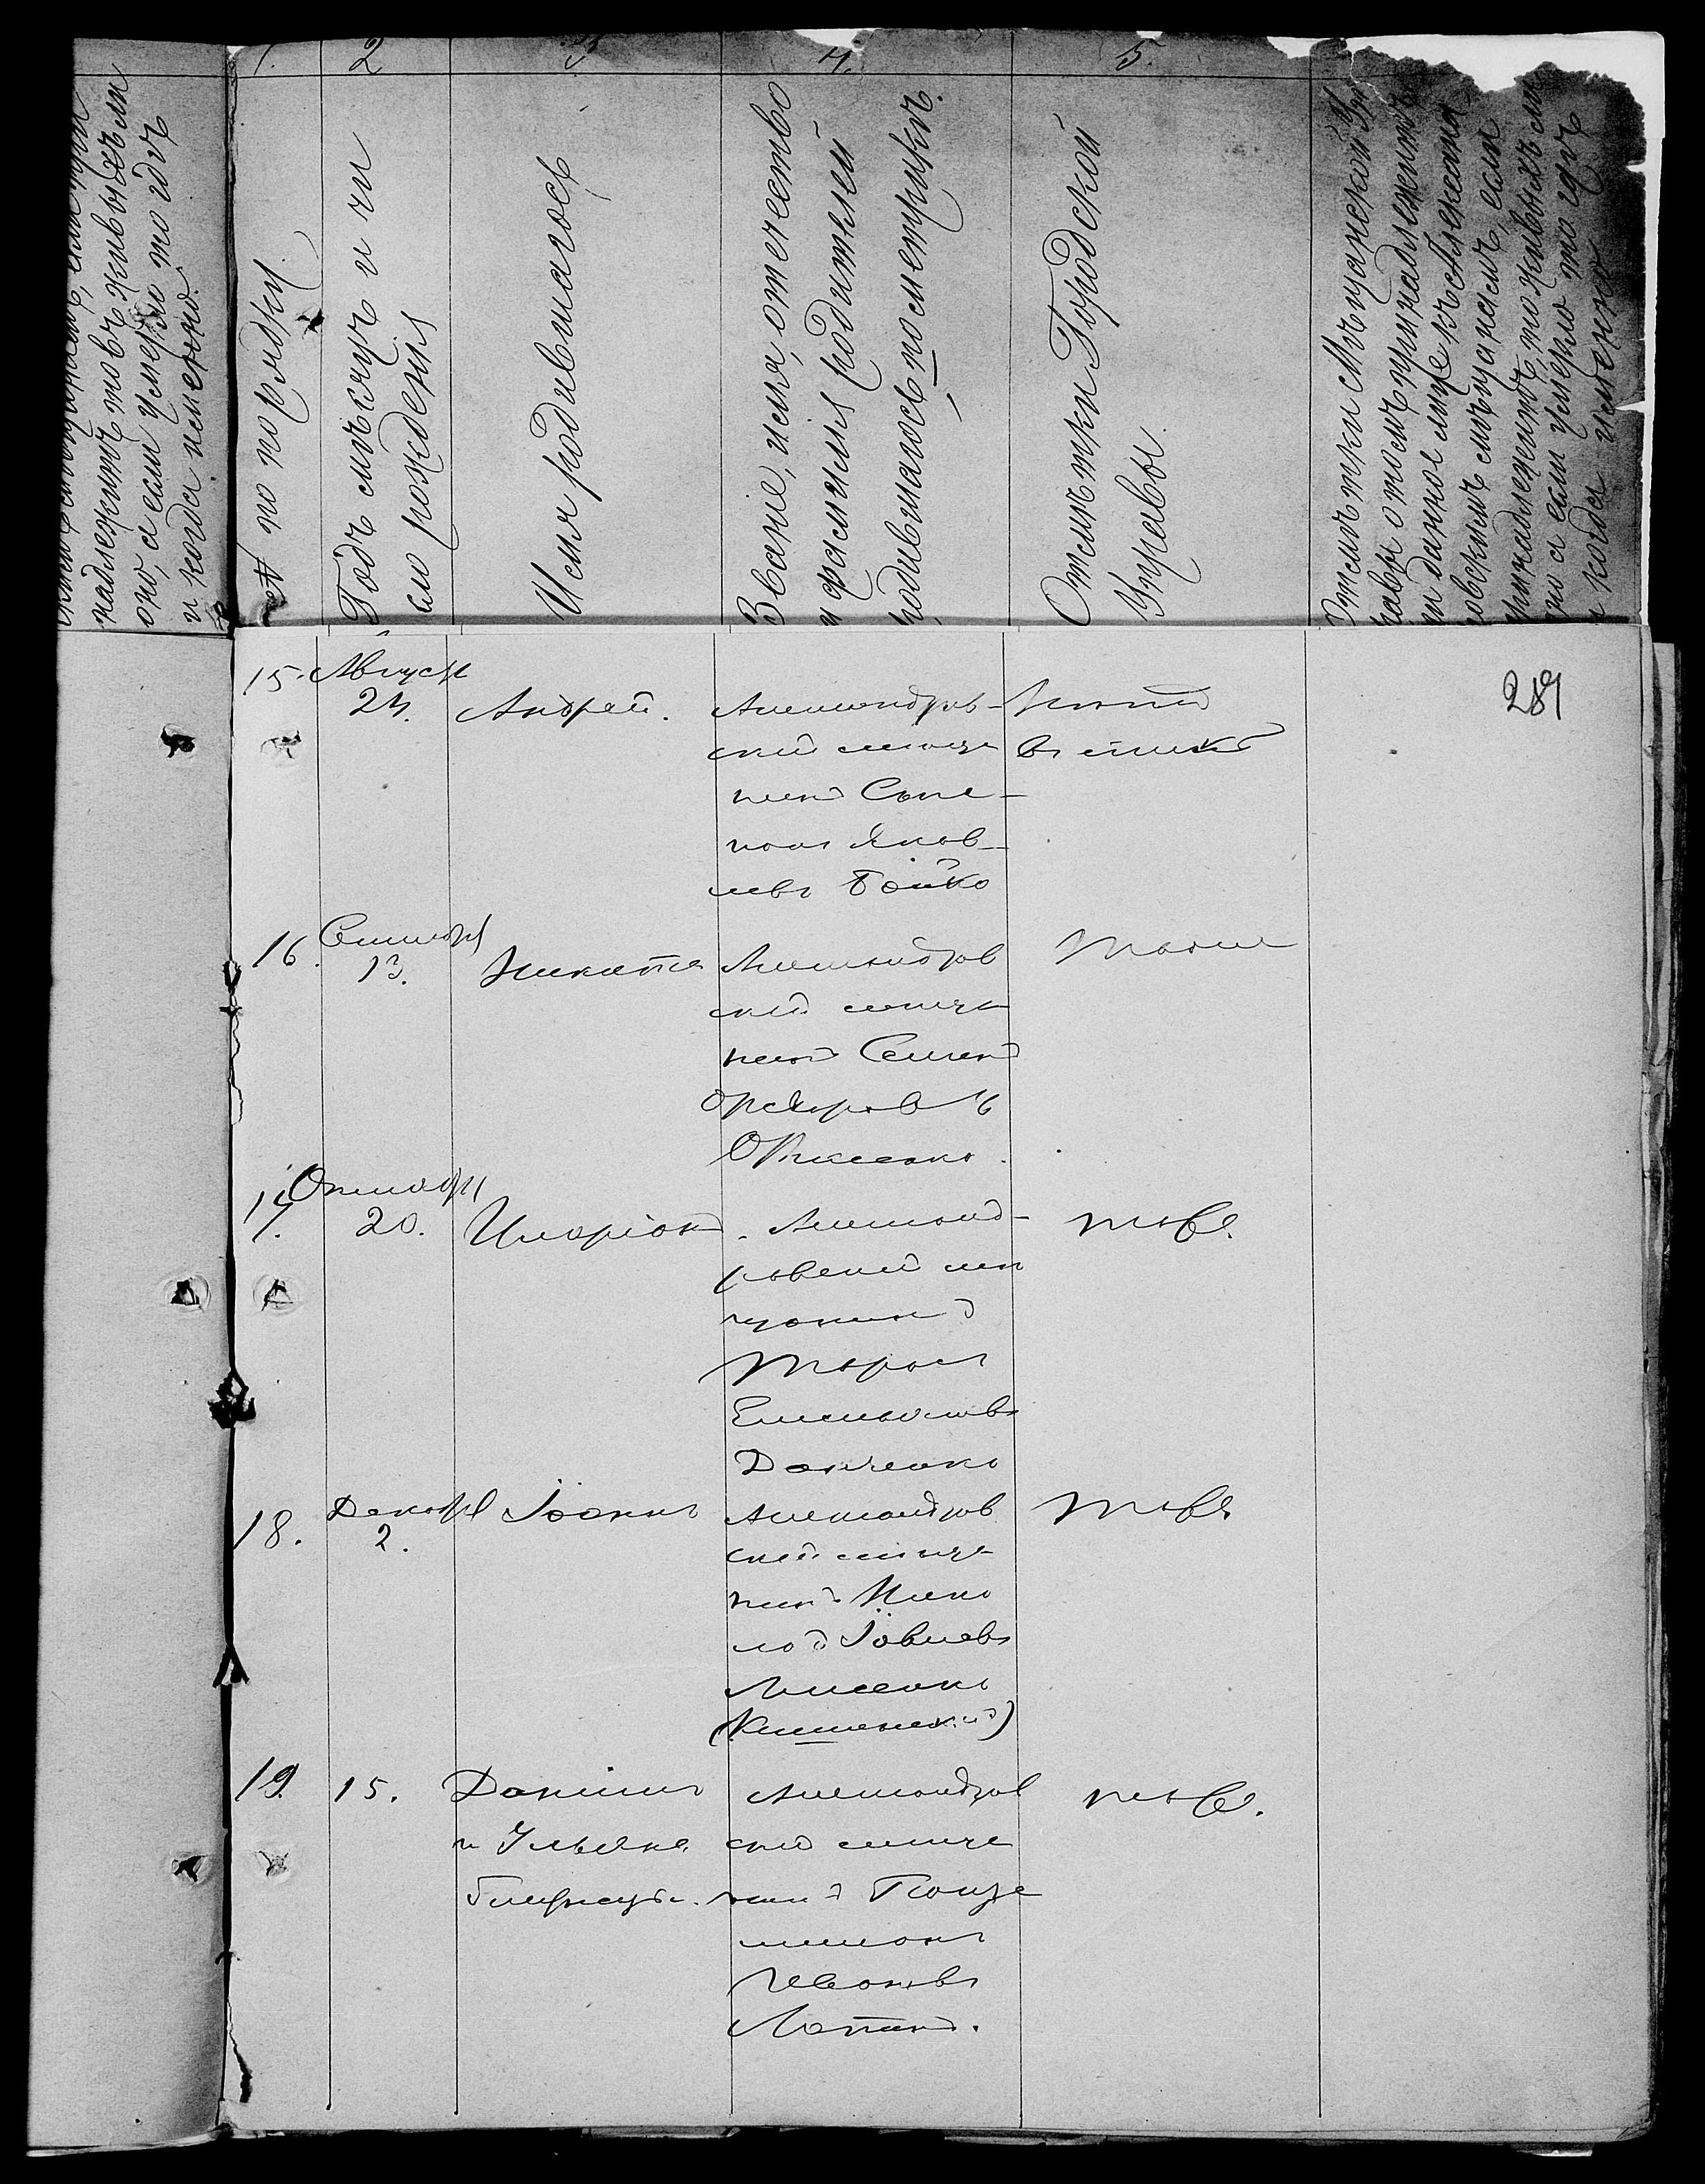 надлежитъ то въ живыхъ ли
оно, а если умерло то гдѣ
и когда именно.
1.
2
3
4.
5.
№ по порядку
Годъ мѣсяцъ и чи
сло рожденія
Имя родившагося
Званіе, имя, отчество
и фамилія родителей
родившагося по метрикѣ.
Отмѣтки Городской
Управы.
Отмѣтки Мѣщанской Уп
равы о томъ принадлежитъ
ли данное лице къ Александ
ровскимъ мѣщанамъ, если
принадлежитъ, то живыхъ ли
оно а если умерло то гдѣ
и когда именно
289
15. Август
24.
Андрей.
Александров-
скій мѣща
нинъ
Яков-
левъ Бойко
16. Сентябр
13.
Никита
Александров
скій мѣща
нинъ Семенъ
Федоровъ
17. Октябр
20.
Иларіонъ
Александ-
ровскій мѣ
щанинъ
Тарасъ
Емельяновъ
Данченко
тоже.
18. Декабр
2.
Іоаннъ
Александров
скій мѣща
нинъ Нико
лай Іовлевъ
Лисенко
тоже
19. 15.
Даніилъ
и Ульяна
близнецы.
Александров
скій мѣща
нинъ Панте
леимонъ
Ивановъ
тоже.